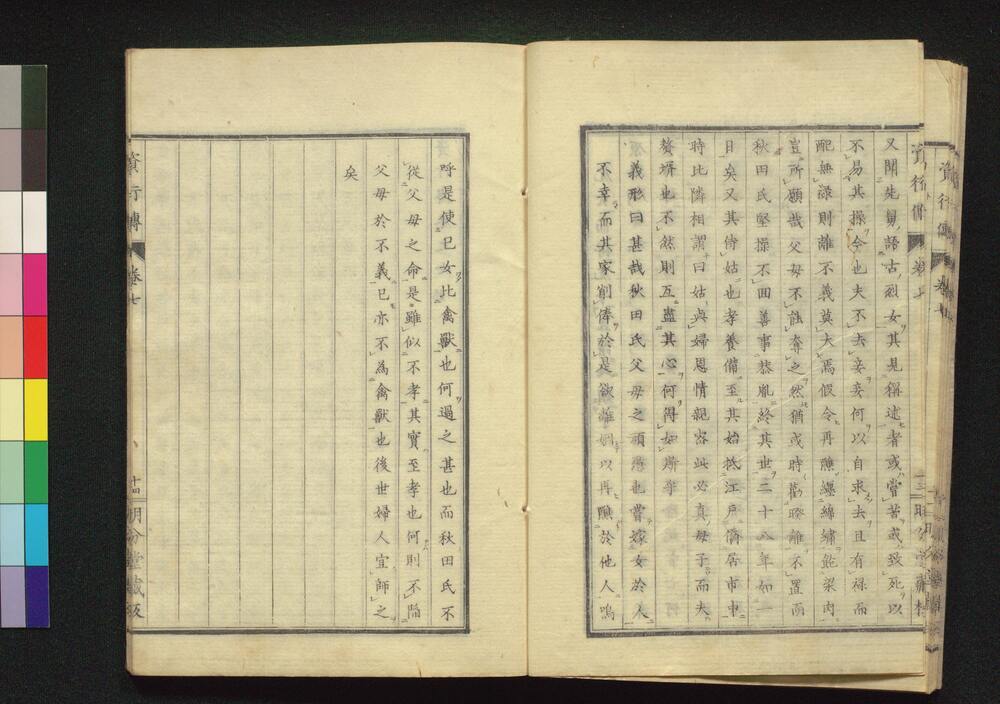 又聞先舅語古烈女其見稱述者或嘗苦或致死以
不易其操今也夫不去妾妾何以自求去且有祿而
配無祿則離不義莫大焉假令再醮纏綿繡飽粱肉
豈所願哉父母不能奪之然猶或時勸睽離不置而
秋田氏堅操不回善事恭胤終其世二十八年如一
日矣又其侍姑也孝養備至其始抵江戶僑居市中
時比隣相謂曰姑與婦恩情親密此必真母子而夫
贅壻也不然則互盡其心何得如斯乎
義形曰甚哉秋田氏父母之頑愚也嘗嫁女於人
不幸而其家削俸於是欲離婣以再醮於他人嗚
呼是使己女比禽獸也何過之甚也而秋田氏不
從父母之命是雖似不孝其實至孝也何則不陷
父母於不義己亦不為禽獸也後世婦人宜師之
矣
資行傳 卷七 十四 明分堂藏板